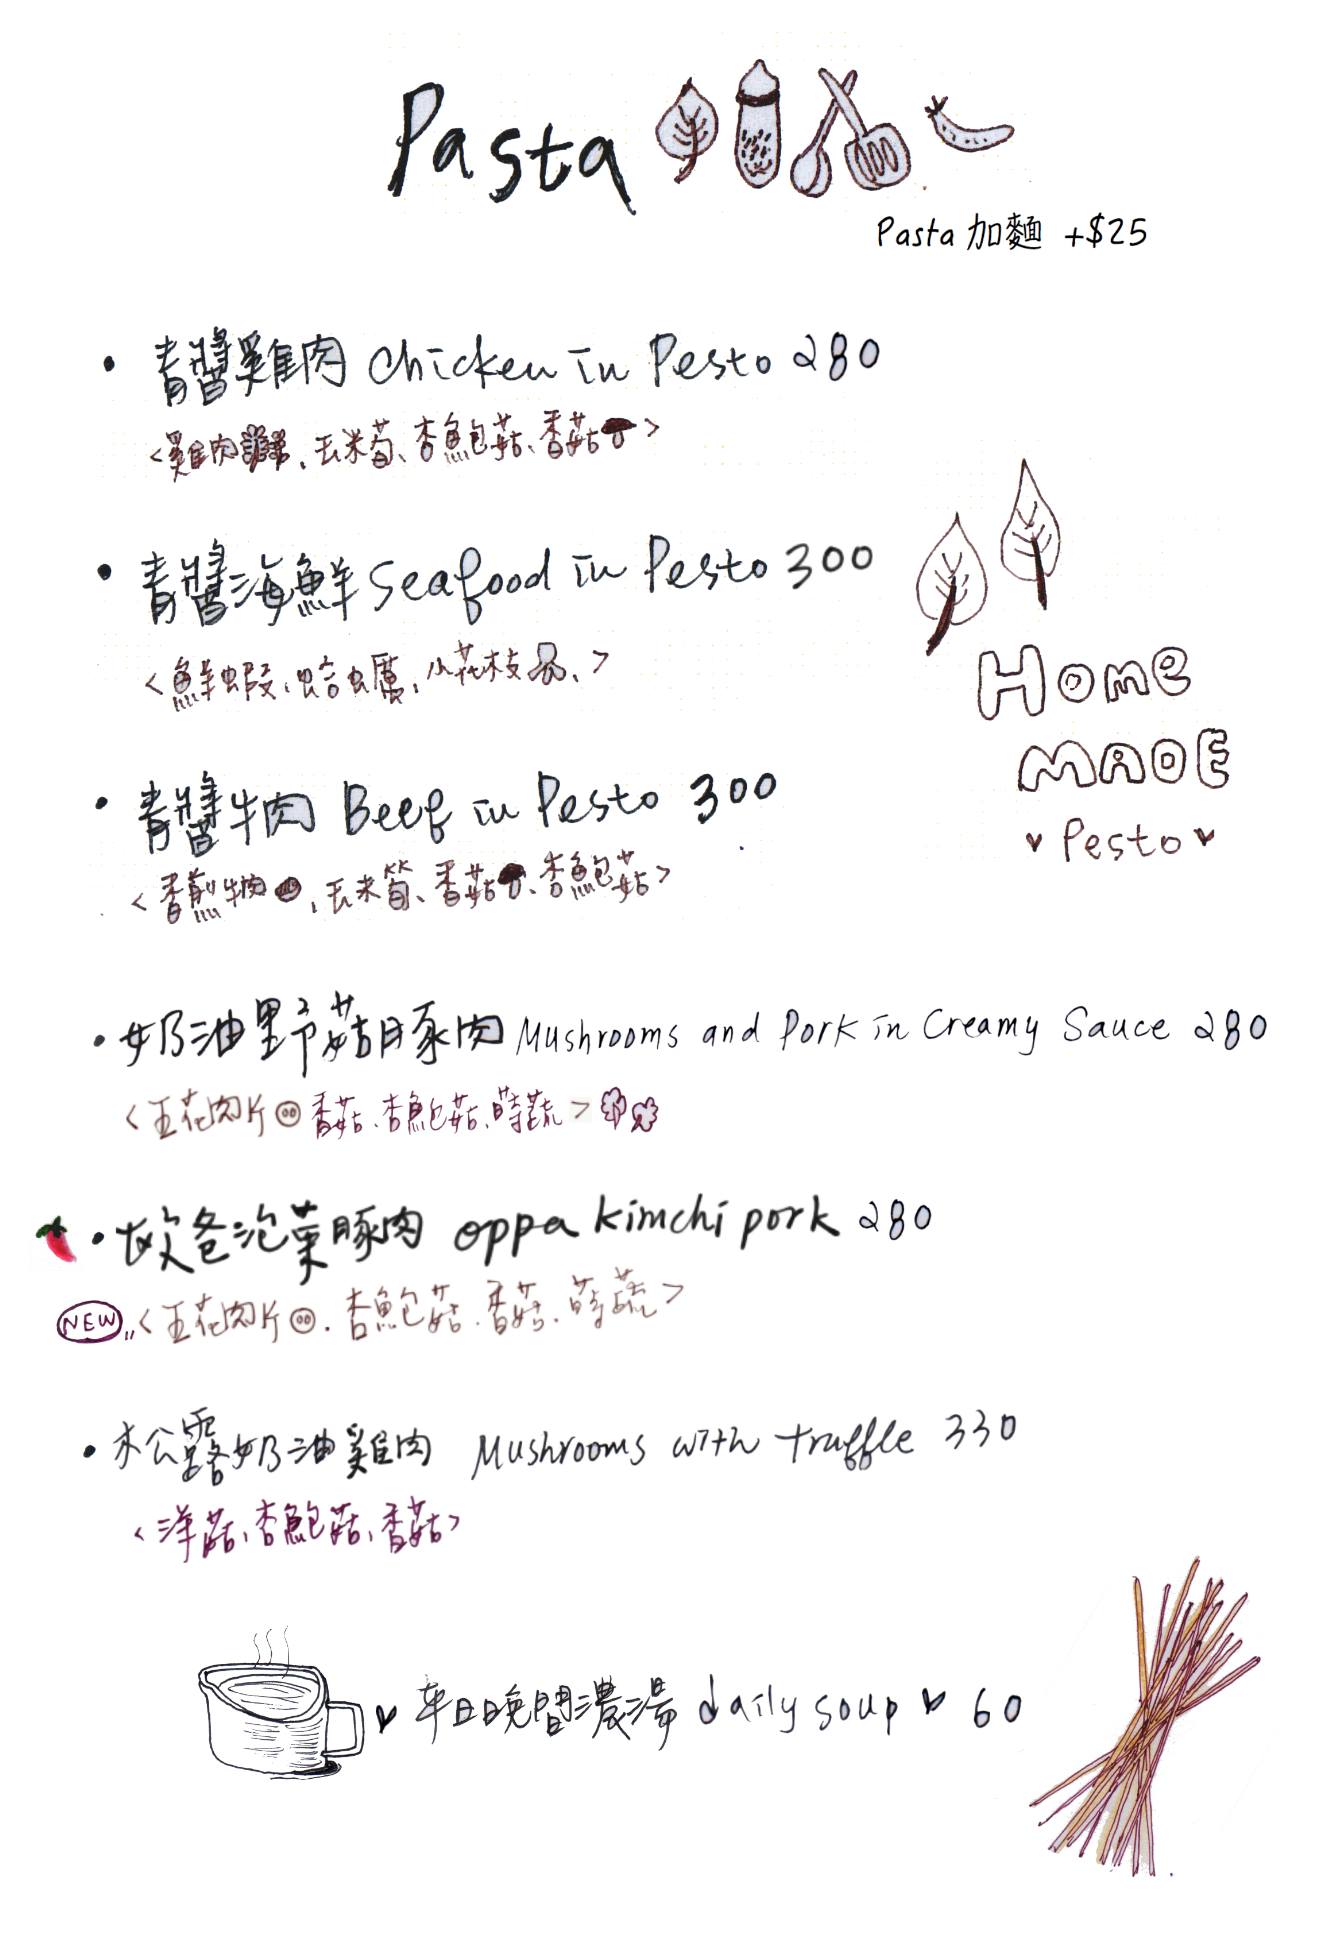 Pasta
Pasta 加麵 +$25
• 青醬雞肉 Chicken in Pesto 280
<雞肉、玉米筍、杏鮑菇、香菇>
• 青醬海鮮 Seafood in Pesto 300
<鮮蝦、蛤蠣、小花枝、>
Home
MADE
Pesto
• 青醬牛肉 Beef in Pesto 300
<香煎牛肉、玉米筍、香菇、杏鮑菇>
• 奶油野菇豚肉 Mushrooms and Pork in Creamy Sauce 280
<五花肉片 香菇、杏鮑菇、時蔬>
• 歐爸泡菜豚肉 oppa kimchi pork 280
NEW <五花肉片、杏鮑菇、香菇、時蔬>
• 松露奶油雞肉 Mushrooms with truffle 330
<洋菇、杏鮑菇、香菇>
平日晚間濃湯 daily soup 60